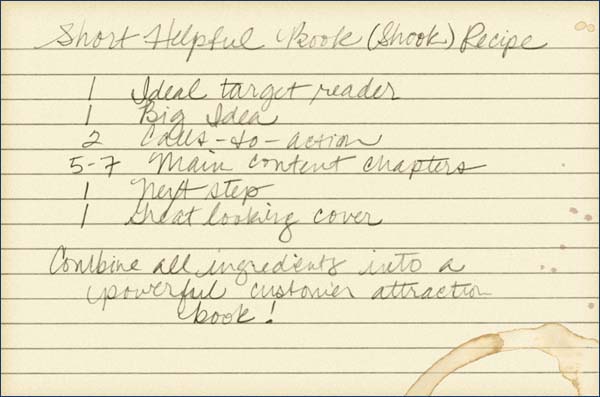 Short Helpful Book (Shook) Recipe
1 Ideal target reader
1 Big Idea
2 Calls-to-action
5-7 Main content chapters
1 Next step
1 Great looking cover
Combine all ingredients into a
powerful customer attraction
book!